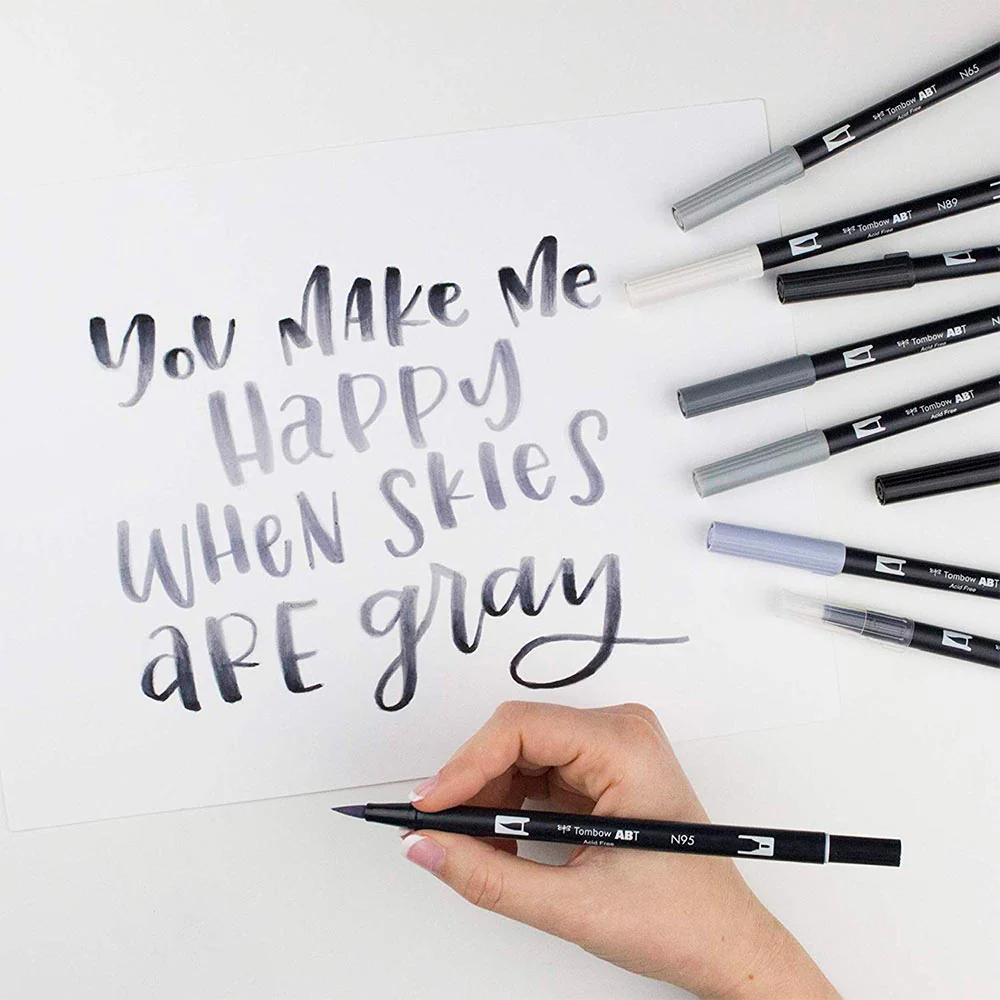 You make me
Happy
when skies
are gray
Tombow ABT N65
Acid Free
Tombow ABT N89
Acid Free
Tombow ABT N
Acid Free
Tombow ABT
Acid Free
Tombow ABT
Acid Free
Tombow ABT N95
Acid Free